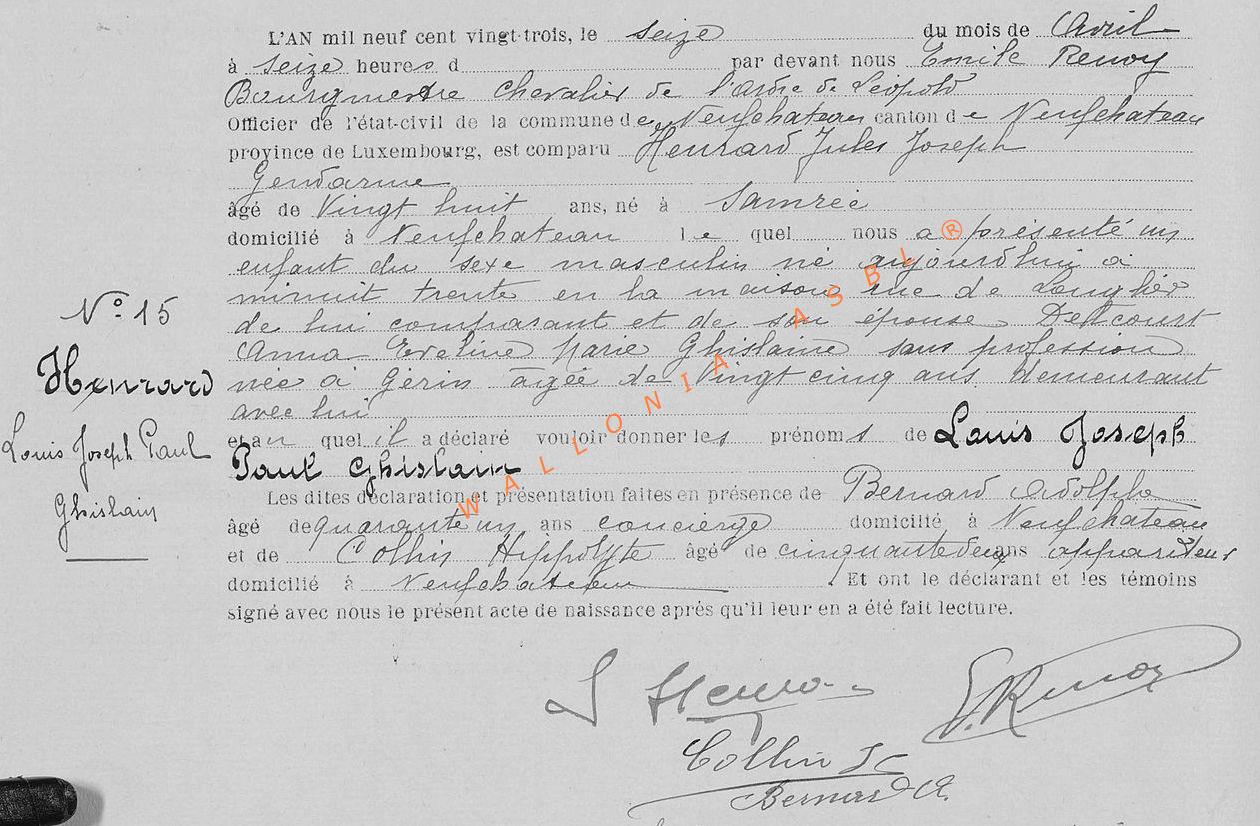 L'AN mil neuf cent vingt-trois, le seize du mois de Avril
à seize heures d par devant nous Emile Renoy
Bourgmestre Chevalier de l'ordre de Léopold
Officier de l'état-civil de la commune de Neufchateau canton de Neufchateau
province de Luxembourg, est comparu Henrard Jules Joseph
Gendarme
âgé de Vingt huit ans, né à Samrée
domicilié à Neufchateau lequel nous a présenté un
enfant du sexe masculin né aujourd'hui à
minuit trente en la maison rue de Longlier
de lui comparant et de son épouse Delcourt
Anna Eveline Marie Ghislaine sans profession
née à Gérin âgée de Vingt cinq ans demeurant
avec lui
et au quel il a déclaré vouloir donner les prénoms de Louis Joseph
Paul Ghislain
Les dites déclaration et présentation faites en présence de Bernard Adolphe
âgé de quarante un ans concierge domicilié à Neufchateau
et de Collin Hippolyte âgé de cinquante deux ans appariteur
domicilié à Neufchateau. Et ont le déclarant et les témoins
signé avec nous le présent acte de naissance après qu'il leur en a été fait lecture.
N° 15
Henrard
Louis Joseph Paul
Ghislain
J Henrard
E. Renoy
Collin
Bernard A.
WALLONIA ASBL ®